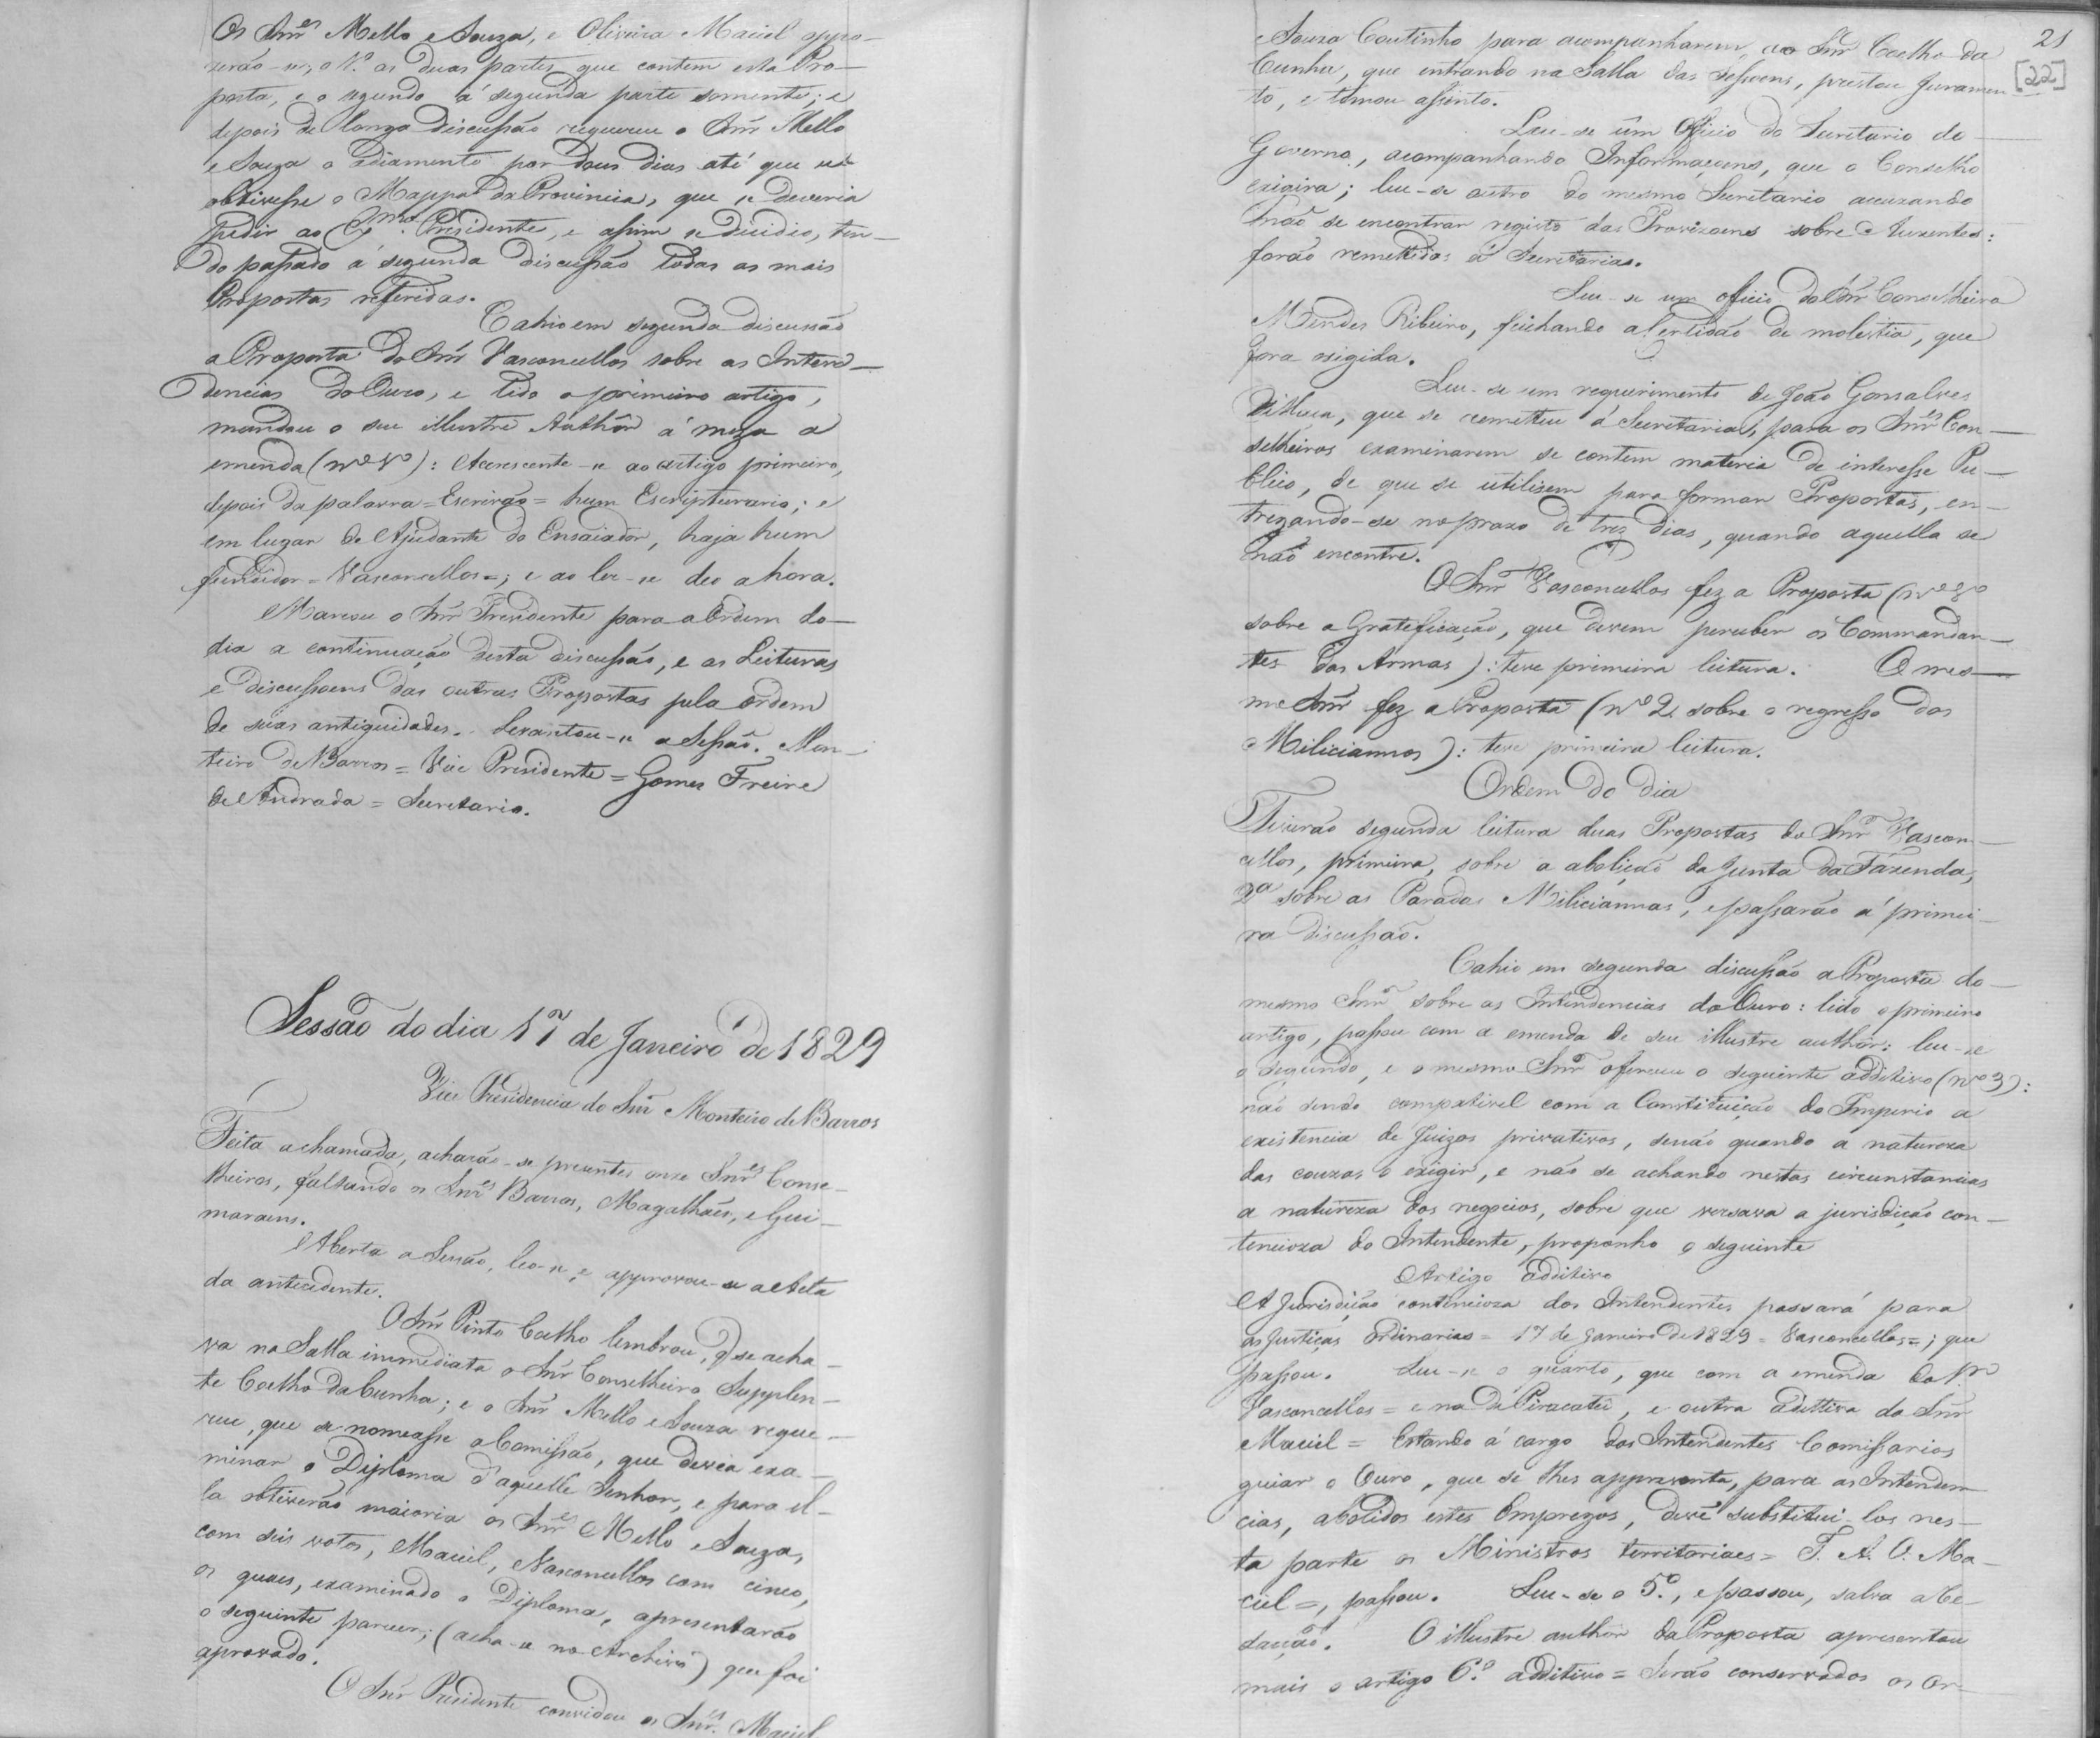 Os Snr.es Mello e Souza, e Oliveira Maciel oppo-
zerão-se; o 1º. as duas partes, que contem esta Pro-
posta, e o segundo á segunda parte somente; e
depois de longa discussão requereu o Snr Mello
e Souza o adiamento por dous dias até que se
obtivesse o Mappa da Provincia, que se deveria
pedir ao Exmo. Presidente, e assim se decidio, ten-
do passado á segunda discussão todas as mais
Propostas referidas.
Cahio em segunda discussão
a Proposta do Snr Vasconcellos sobre as Inten-
dencias do Ouro, e lido o primeiro artigo,
mandou o seu illustre Authôr á meza a
emenda (nº 1º): Accrescente-se ao artigo primeiro,
depois da palavra = Escrivão = hum Escripturario; e
em lugar de Ajudante do Ensaiador, haja hum
fundidor = Vasconcellos =; e ao ler-se deo a hora.
Marcou o Snr Presidente para a Ordem do
dia a continuação desta discussão, e as Leituras
e discussoens das outras Propostas pela ordem
de suas antiguidades. Levantou-se a Sessão. Mon-
teiro de Barros = Vice Presidente = Gomes Freire
de Andrada = Secretario.
Sessão do dia 17 de Janeiro de 1829
Vice Presidencia do Snr Monteiro de Barros
Feita a chamada, acharão-se presentes onze Snr.es Conse-
lheiros, faltando os Snr.es Barros, Magalhães, e Gui-
maraens.
Aberta a Sessão, leo-se, e approvou-se a Acta
da antecedente.
O Snr Pinto Coelho lembrou, q̃ se acha-
va na Salla immediata o Snr Conselheiro Supplen-
te Coelho da Cunha; e o Snr Mello e Souza reque-
reu, que se nomeasse a Comissão, que devea exa-
minar o Diploma d'aquelle Senhor, e para el-
la obtiverão maioria os Snr.es Mello e Souza,
com seis votos, Maciel, Vasconcellos com cinco,
os quaes, examinado o Diploma, apresentarão
o seguinte parecer; (acha-se no Archivo) que foi
aprovado.
O Snr Presidente convidou os Snr.es Maciel
21
[22]
e Souza Coutinho para acompanharem, ao Snr Coelho da
Cunha, que entrando na Salla das Sessoens, prestou Juramen-
to, e tomou assento.
Leu-se um Officio do Secretario do
Governo, acompanhando Informaçoens, que o Conselho
exigira; leu-se outro do mesmo Secretario accuzando
não se encontrar registo das Provizoens sobre Auzentes:
forão remettidos á Secretaria.
Leu-se um officio do Snr Conselheiro
Mendes Ribeiro, feichando a Certidão de molestia, que
fora exigida.
Leu-se um requerimento de João Gonsalves
que se remetteu á Secretaria, para os Snr.es Con-
selheiros examinarem se contem materia de interesse Pu-
blico, de que se utilisem para formar Propostas, en-
tregando-se no prazo de tres dias, quando aquella se
não encontre.
O Snr Vasconcellos fez a Proposta (nº 1º
sobre a Gratificação, que devem perceber os Commandan-
tes das Armas): teve primeira leitura. O mes-
mo Snr fez a Proposta (nº 2 sobre o regresso dos
Miliciannos): teve primeira leitura.
Ordem do dia
Tiverão segunda leitura duas Propostas do Snr Vascon-
cellos, primeira, sobre a abolição da Junta da Fazenda,
2ª sobre as Paradas Miliciannas, e passarão á primei-
ra discussão.
Cahio em segunda discussão a Proposta do
mesmo Snr sobre as Intendencias do Ouro: lido o primeiro
artigo, passou com a emenda de seu illustre authôr: leu-se
o segundo, e o mesmo Snr offereceu o seguinte additivo (nº 3):
não sendo compativel com a Constituição do Imperio a
existencia de Juizos privativos, senão quando a natureza
das couzas o exigir, e não se achando nestas circunstancias
a natureza dos negocios, sobre que versava a jurisdição con-
tencioza do Intendente, proponho o seguinte
Artigo additivo
A Jurisdição contencioza dos Intendentes passará para
as Justiças Ordinarias = 17 de Janeiro de 1829 = Vasconcellos =; que
passou. Leu-se o quarto, que com a emenda do Snr
Vasconcellos = e na de Piracatú, e outra additiva do Snr
Maciel = Estando á cargo dos Intendentes Comissarios
guiar o Ouro, que se lhes appresenta, para as Intenden-
cias, abolidos estes Empregos, deve substitui-los nes-
ta parte os Ministros territoriaes = F. A. O. Ma-
ciel =, passou. Leu-se o 5º., e passou, salva a Re-
dacção. O illustre author da Proposta apresentou
mais o artigo 6º. additivo = Serão conservados os Or-